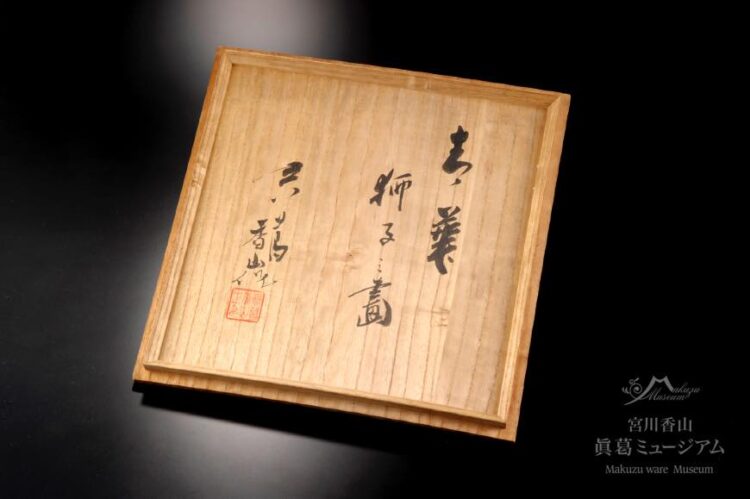 青華
獅子之畫
真葛香山造
Makuzu
Museum
宮川香山
眞葛ミュージアム
Makuzu ware Museum